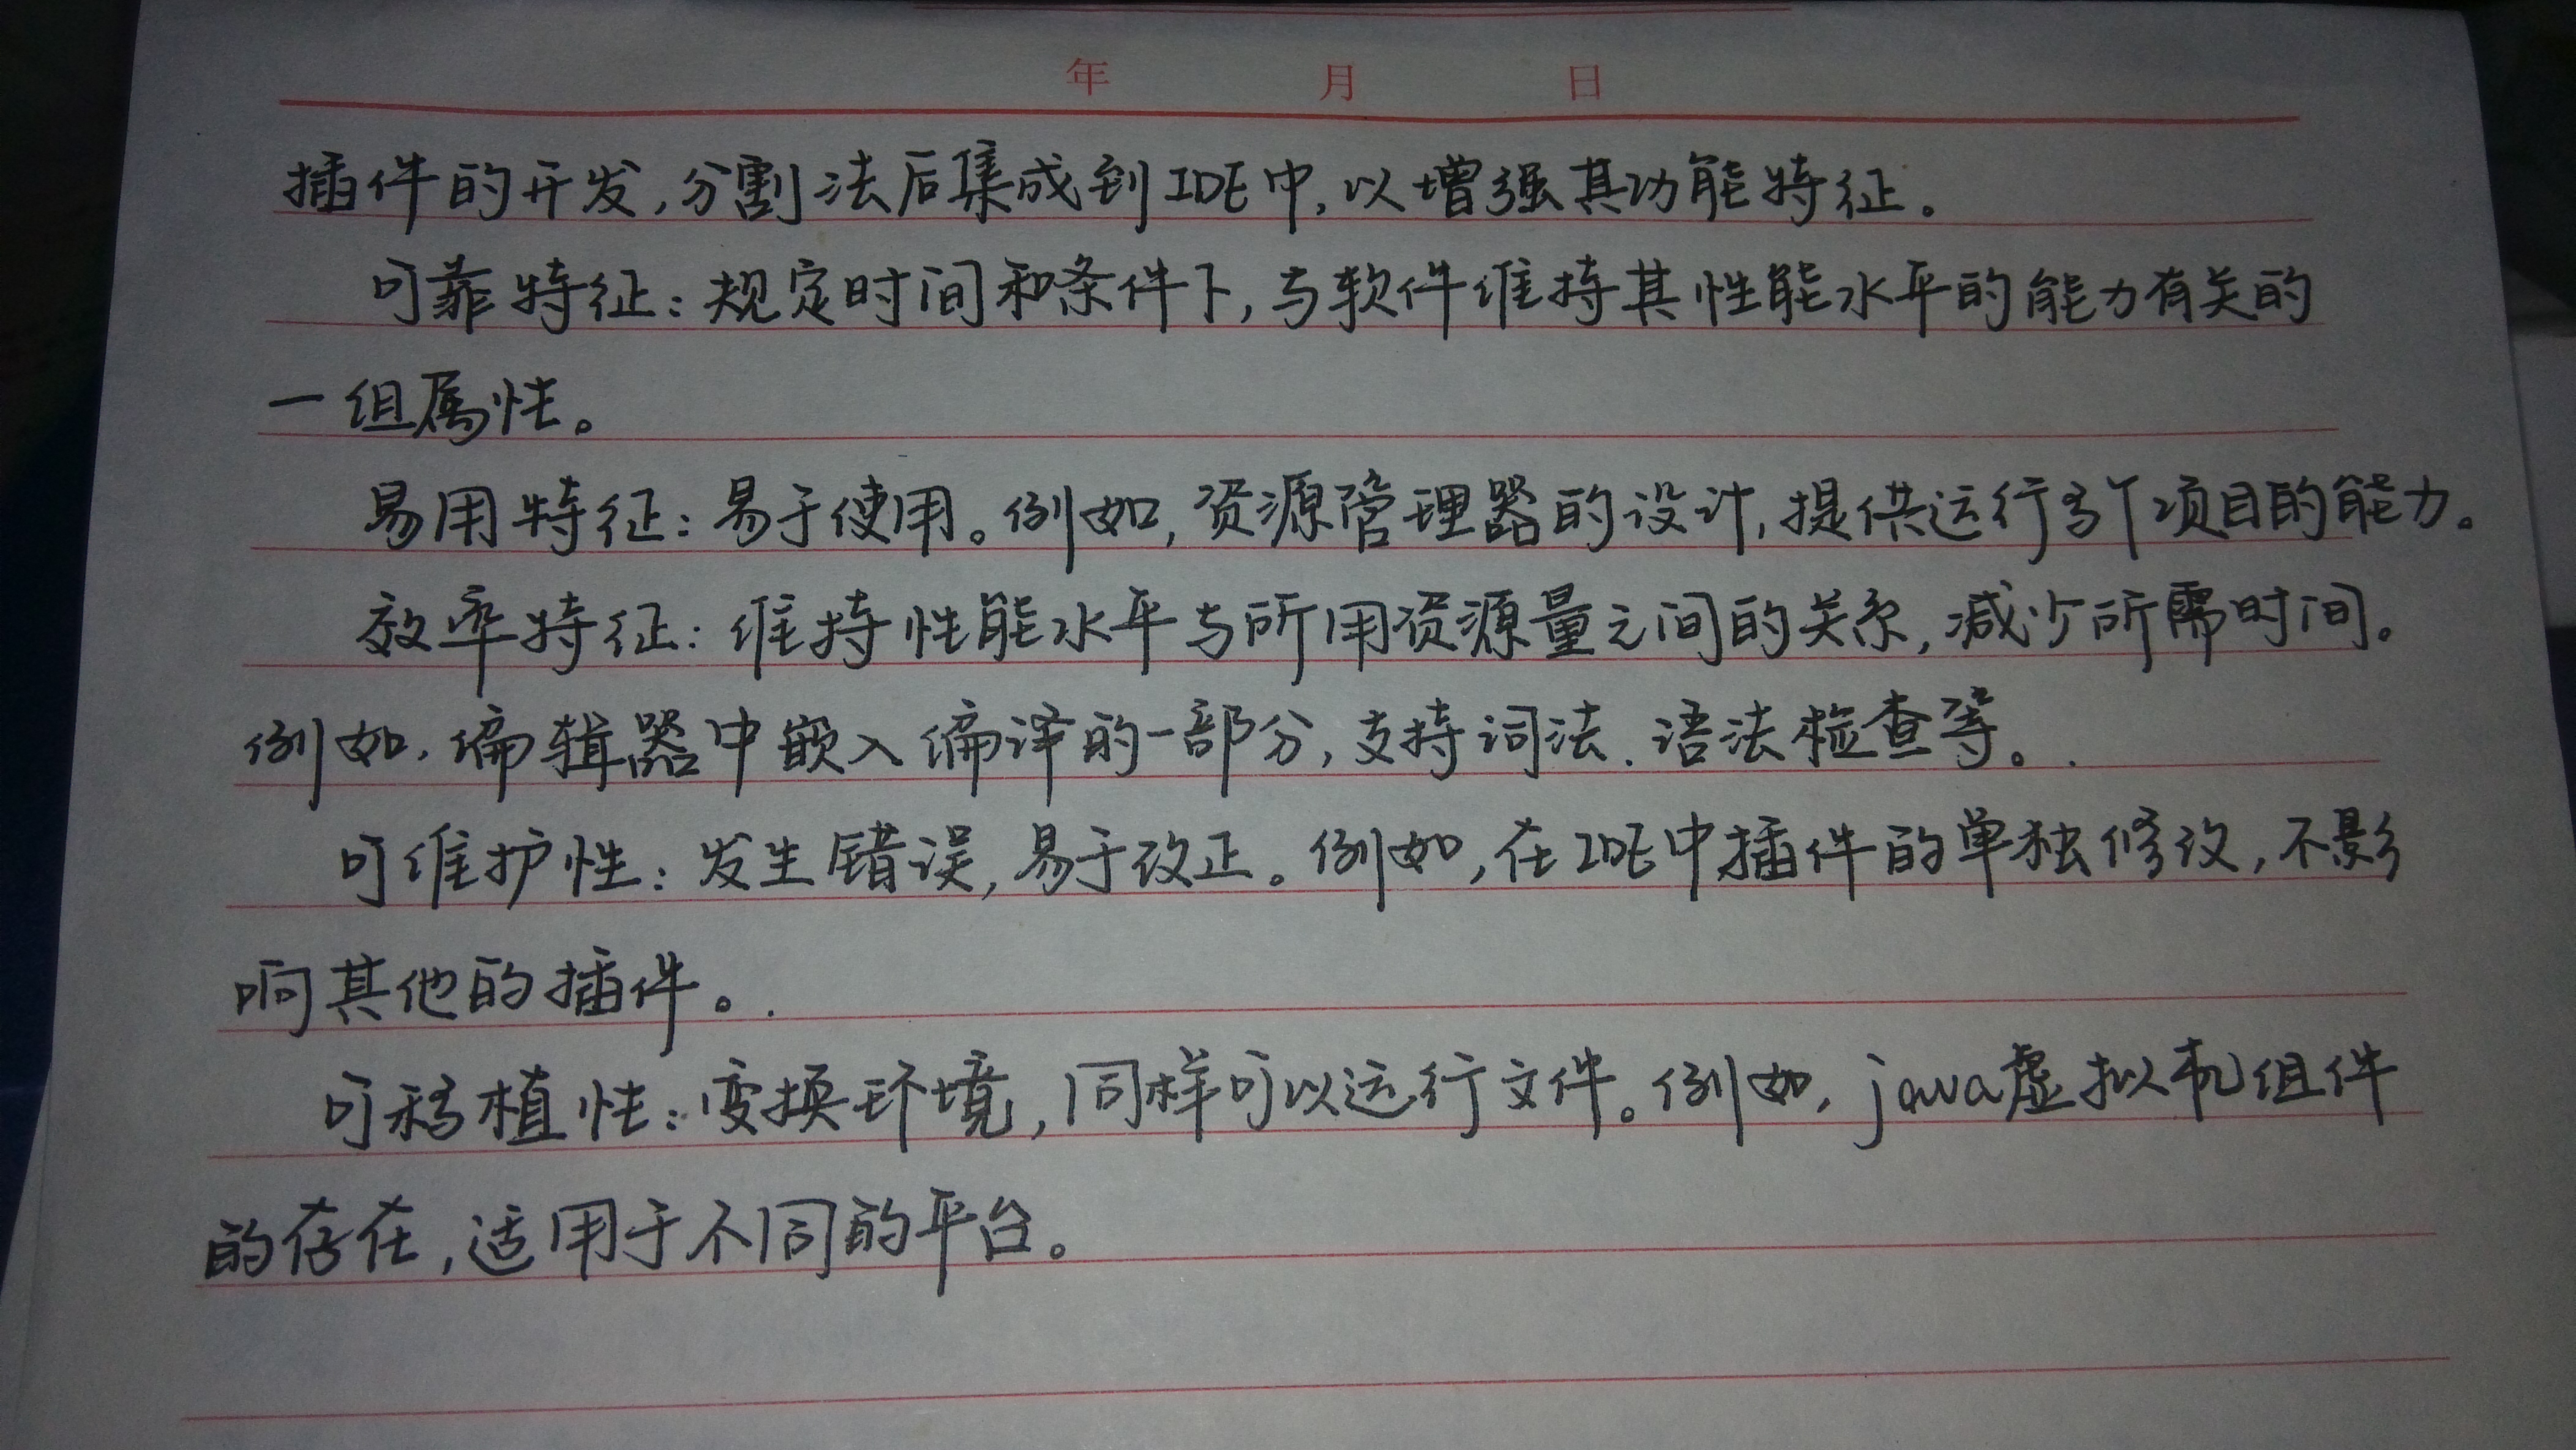 年 月 日
插件的开发,分割法后集成到IDE中,以增强其功能特征。
可靠特征:规定时间和条件下,与软件维持其性能水平的能力有关的
一组属性。
易用特征:易于使用。例如,资源管理器的设计,提供运行多个项目的能力。
效率特征:维持性能水平与所用资源量之间的关系,减少所需时间。
例如,编辑器中嵌入编译的一部分,支持词法.语法检查等。.
可维护性:发生错误,易于改正。例如,在IDE中插件的单独修改,不影
响其他的插件。.
可移植性:变换环境,同样可以运行文件。例如,java虚拟机组件
的存在,适用于不同的平台。